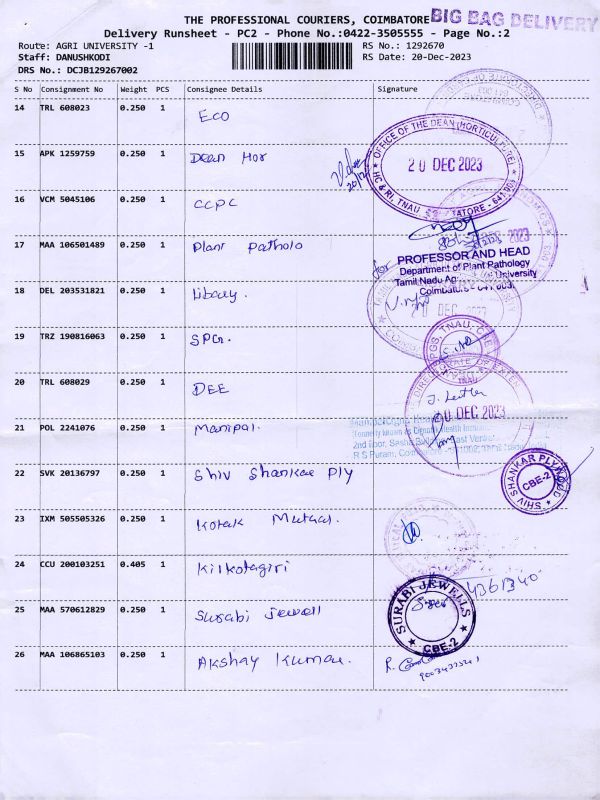 THE PROFESSIONAL COURIERS, COIMBATORE BIG BAG DELIVERY
Delivery Runsheet - PC2 - Phone No.:0422-3505555 - Page No.:2
Route: AGRI UNIVERSITY -1 RS No.: 1292670
Staff: DANUSHKODI RS Date: 20-Dec-2023
DRS No.: DCJB129267002
S No Consignment No Weight PCS Consignee Details Signature
14 TRL 608023 0.250 1 Eco
15 APK 1259759 0.250 1 Dean Hor
OFFICE OF THE DEAN (HORTICULTURE)
20 DEC 2023
HC & RI, TNAU
16 VCM 5045106 0.250 1 CCPC
17 MAA 106501489 0.250 1 Plant Patholo
for PROFESSOR AND HEAD
Department of Plant Pathology
Tamil Nadu Ag University
18 DEL 203531821 0.250 1 Library.
DEC 2023
19 TRZ 190816063 0.250 1 SPGS.
PGS, TNAU, CBE
20 TRL 608029 0.250 1 DEE
DIRECTORATE OF EXTEN
TNAU
20 DEC 2023
21 POL 2241076 0.250 1 Manipal.
2nd floor,
R S Puram,
22 SVK 20136797 0.250 1 Shiv Shankar Ply
SHIV SHANKAR PLYWOOD
CBE-2
23 IXM 505505326 0.250 1 Kotak Mutual.
24 CCU 200103251 0.405 1 Kilkotagiri
25 MAA 570612829 0.250 1 Surabi Jewell
SURABI JEWELLS
CBE-2
26 MAA 106865103 0.250 1 Akshay Kumar.